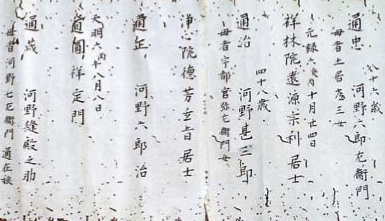 八十六歳
通忠 河野七郎左衛門
母者土居彦三女
元禄六癸酉十月廿四日
祥林院遠源宗利居士
四十八歳
通治 河野甚三郎
母者宇都宮弥左衛門女
浄心院徳芳玄旨居士
通正 河野六郎治
天明六丙午八月八日
通圓祥定門
通茂 河野縫殿之助
母者河野七左衛門通在娘